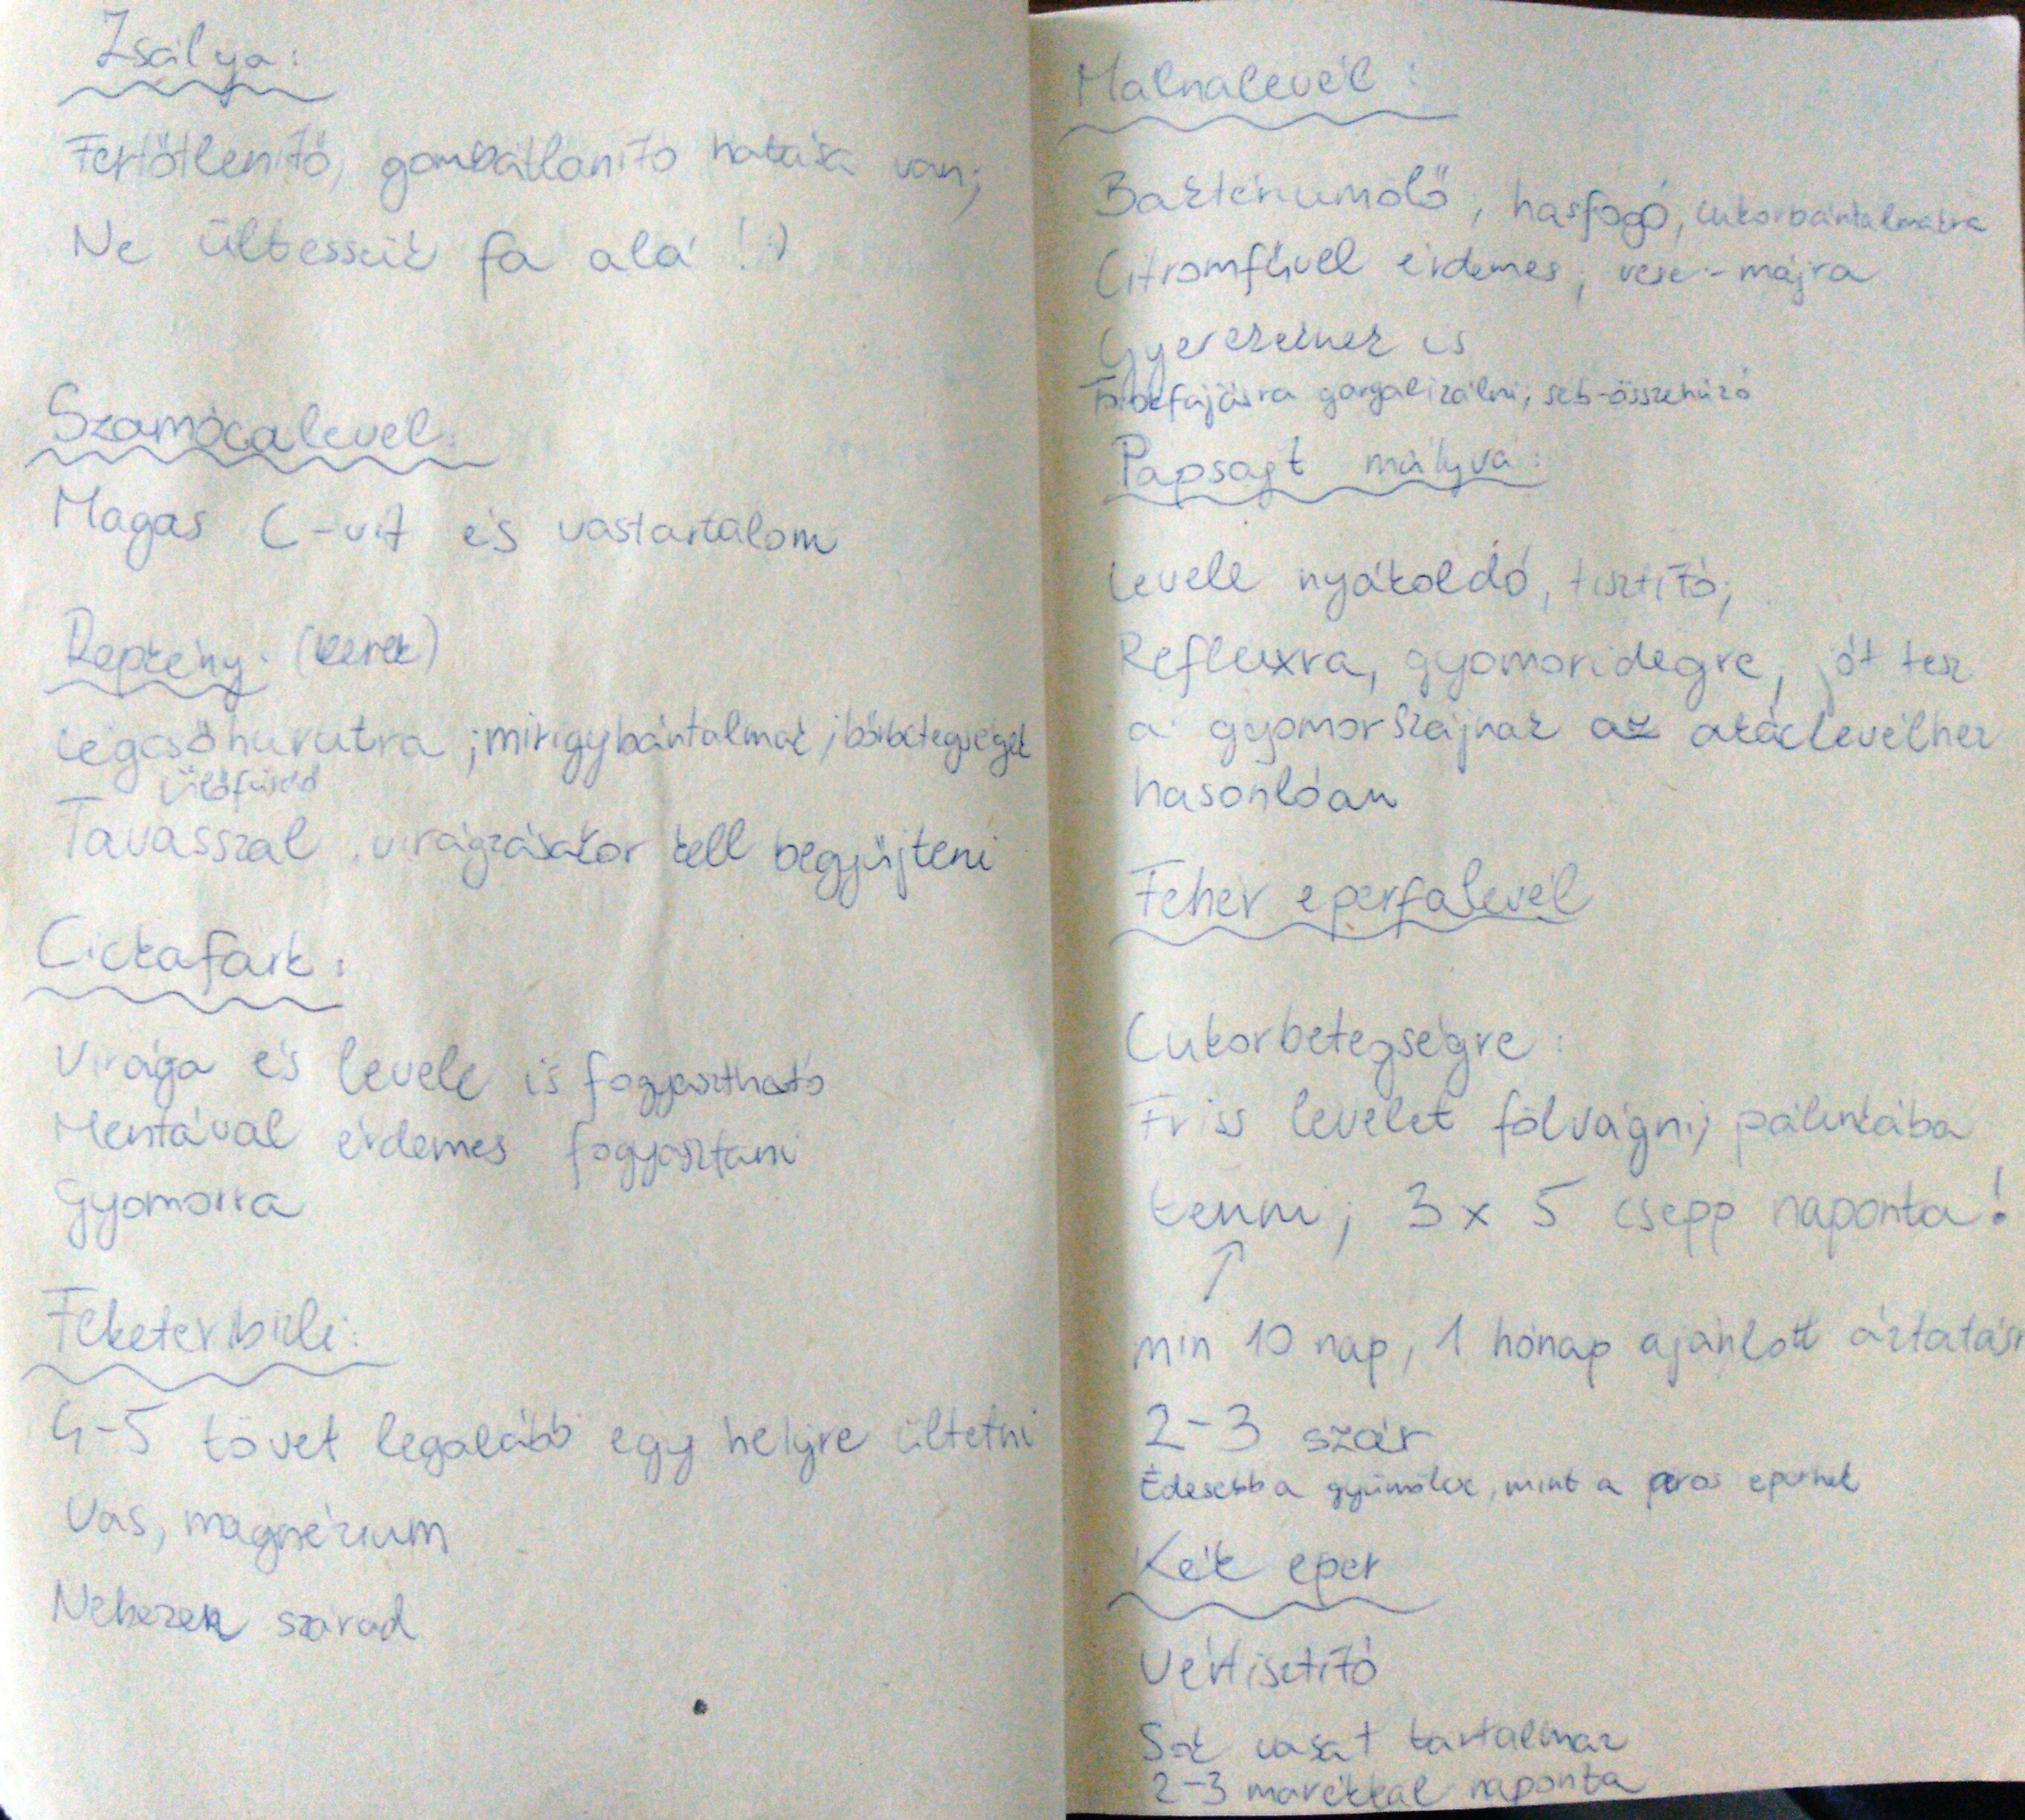 Zsálya:
Fertőtlenítő, gombátlanító hatása van;
Ne ültessük fa alá! :)
Szamócalevél:
Magas C-vit és vastartalom
Repkény: (kerek)
Légcsőhurutra; mirigybántalmak; bőrbetegségek
Ülőfürdő
Tavasszal, virágzásakor kell begyűjteni
Cickafark:
Virága és levele is fogyasztható
Mentával érdemes fogyasztani
Gyomorra
Feketeribizli:
4-5 tövet legalább egy helyre ültetni
Vas, magnézium
Nehezen szárad
Málnalevél:
Baktériumölő, hasfogó, cukorbántalmakra
Citromfűvel érdemes; vese-májra
Gyerekeknek is
Torokfájásra gargalizálni; seb-összehúzó
Papsajt mályva:
Levele nyákoldó, tisztító;
Refluxra, gyomoridegre, jót tesz
a gyomorszájnak az akáclevélhez
hasonlóan
Fehér eperfalevél
Cukorbetegségre:
Friss levelet fölvágni; pálinkába
tenni; 3 x 5 csepp naponta!
↑
min 10 nap, 1 hónap ajánlott áztatási
2-3 szár
Édesebb a gyümölcse, mint a piros epernek
Kék eper
Vértisztító
Sok vasat tartalmaz
2-3 marékkal naponta